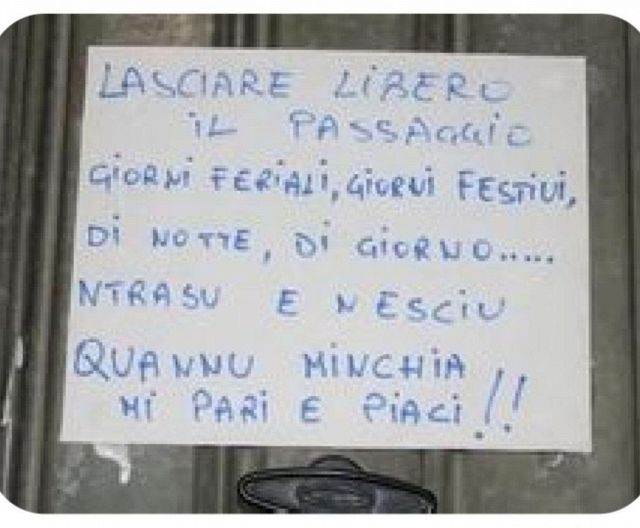 LASCIARE LiBERO
iL PASSAGGIO
GIORNI FERIALI, GIORNI FESTIVI,
Di NOTTE, Di GIORNO.....
NTRASU E NESCIU
QUANNU MINCHIA
Mi PARI E PIACI!!